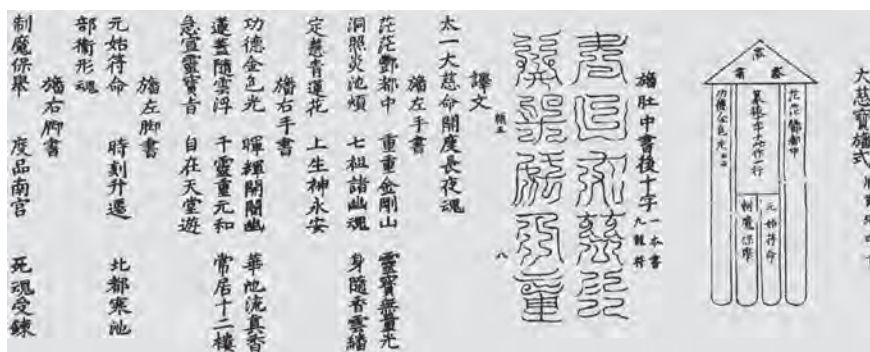 大慈寶旛式
茫茫酆都中
元始符命
制魔保舉
功德金色光云云
旛肚中書後十字
一本書
九龍符
八
譯文
太一大慈命開度長夜魂
旛左手書
茫茫酆都中 重重金剛山 靈寶無量光
洞照炎池煩 七祖諸幽魂 身隨香雲旛
定慧青蓮花 上生神永安
旛右手書
功德金色光 暉輝開闇幽 華池流真香
蓮蓋隨雲浮 千靈重元和 常居十二樓
急宣靈寶旨 自在天堂遊
旛左脚書
元始符命 時刻升遷 北都寒池
部衛形魂
旛右脚書
制魔保舉 度品南宮 死魂受鍊